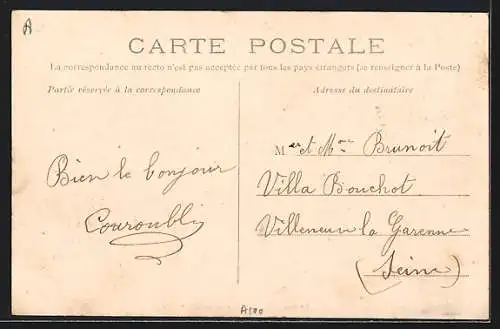 A
CARTE POSTALE
La correspondance au recto n'est pas acceptée par tous les pays étrangers (se renseigner à la Poste)
Partie réservée à la correspondance
Adresse du destinataire
Mer et Mme Brunoit
Villa Bouchot
Villeneuve la Garenne
(Seine)
Bien le bonjour
A100